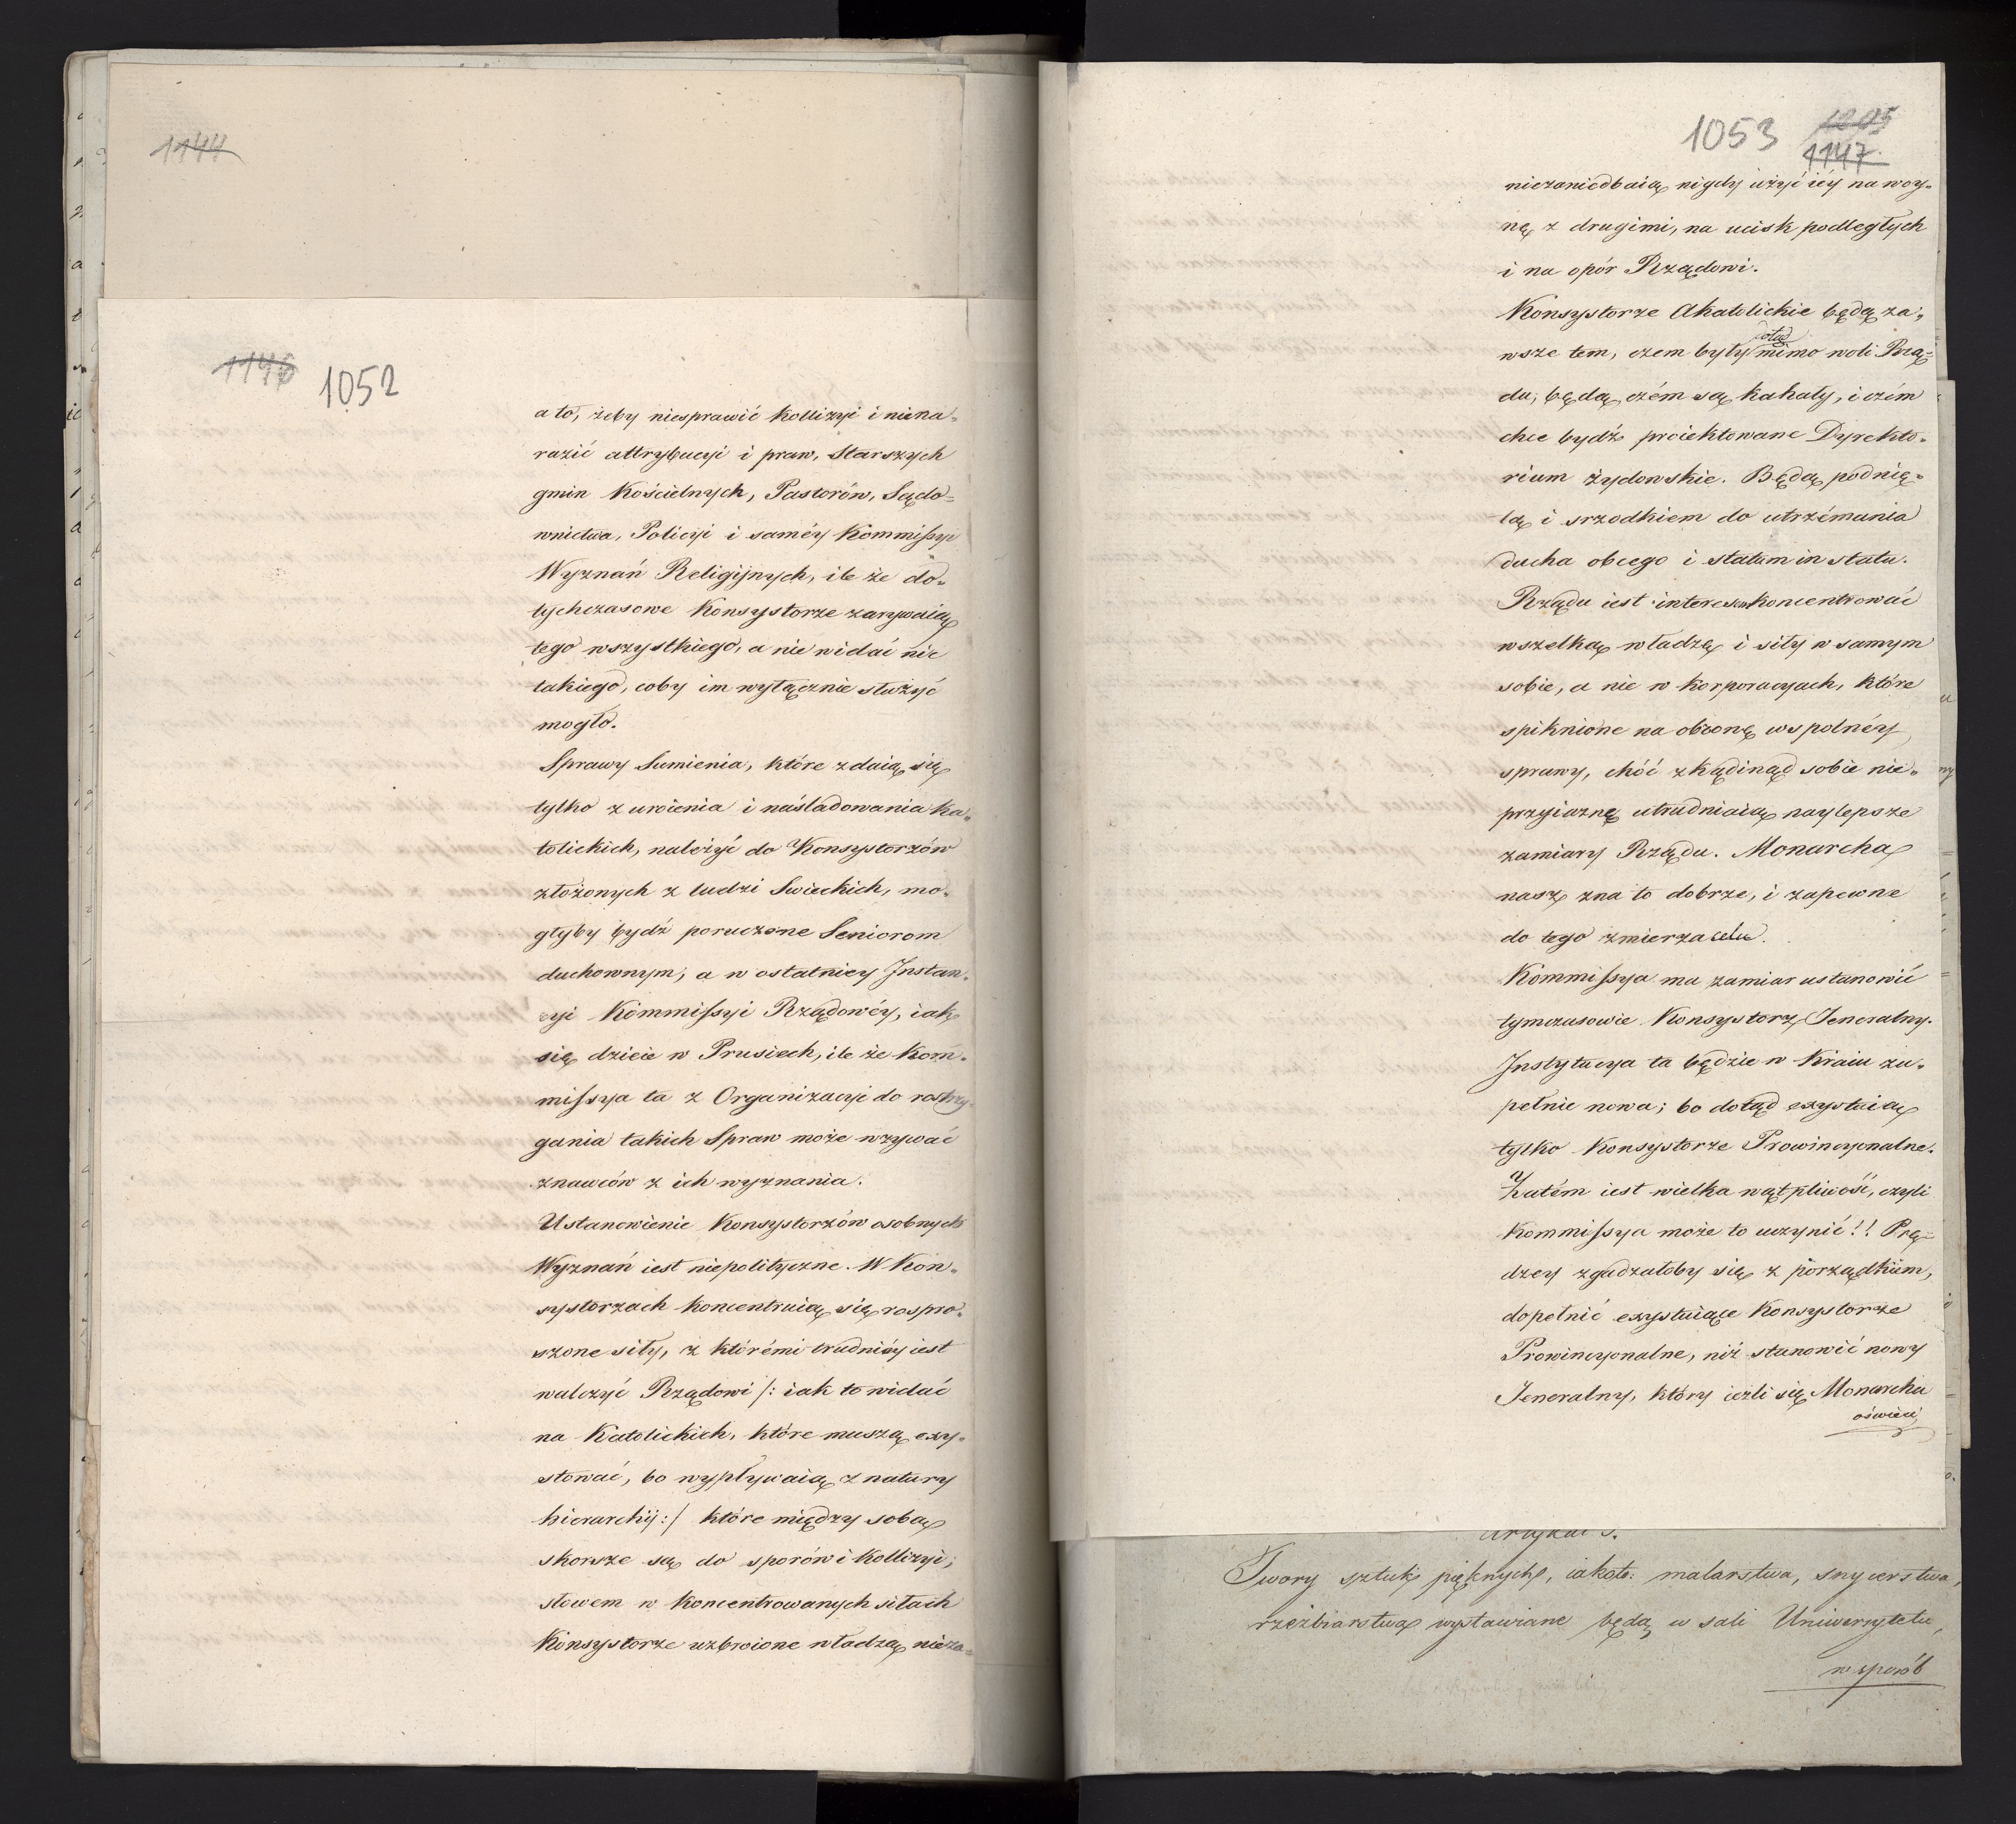 1144
1146 1052
a to, żeby niesprawić kollizyi i niena„
razić attrybucyi i praw, Starszych
gmin Kościelnych, Pastorów, Sądo„
wnictwa, Policyi i saméy Kommissyi
Wyznań Religijnych, ile że do„
tychczasowe Konsystorze zarywaią
tego wszystkiego, a nie widać nic
takiego, coby im wyłącznie służyć
mogło.
Sprawy Sumienia, które zdaią się
tylko z uroienia i naśladowania Ka„
tolickich, należyć do Konsystorzów
złożonych z ludzi Swieckich, mo„
głyby bydź poruczone Seniorom
duchownym; a w ostatniey Instan„
cyi Kommissyi Rządowéy, iak
się dzieie w Prusiech, ile że Kom„
missya ta z Organizacyi do rostrzy„
gania takich Spraw może wzywać
znawców z ich wyznania.
Ustanowienie Konsystorzów osobnych
Wyznań iest niepolityczne. W Kon„
systorzach koncentruią się rospro„
szone siły, z którémi trudniéy iest
walczyć Rządowi /: iak to widać
na Katolickich, które muszą exy„
stować, bo wypływaią z natury
hierarchij :/ które między sobą
skorsze są do sporów i Kollizyi;
słowem w koncentrowanych siłach
Konsystorze uzbroione władzą nieza„
1053 1205
1147.
niezaniedbaią nigdy użyć iéy na woy„
nę z drugimi, na ucisk podległych
i na opór Rządowi.
Konsystorze Akatolickie będą za„
wsze tem, czem były dotąd mimo woli Rzą„
du, będą czém są kahały, i czém
chce bydź proiektowane Dyrekto„
rium żydowskie. Będą podnie„
tą i srzodkiem do utrzémania
ducha obcego i statum in statu.
Rządu iest interesem koncentrować
wszelką władzę i siły w samym
sobie, a nie w korporacyach, które
spiknione na obronę wspolnéy
sprawy, chóć zkądinąd sobie nie„
przyiazne utrudniaią naylepsze
zamiary Rządu. Monarcha
nasz zna to dobrze, i zapewne
do tego zmierza celu.
Kommissya ma zamiar ustanowić
tymczasowie Konsystorz Jeneralny.
Instytucya ta będzie w Kraiu zu„
pełnie nowa; bo dotąd exystuią
tylko Konsystorze Prowincyonalne.
Zatém iest wielka wątpliwość, czyli
Kommissya może to uczynić!! Prę„
dzey zgadzałoby się z porządkiem,
dopełnić exystuiące Konsystorze
Prowincyonalne, niż stanowić nowy
Jeneralny, który ieżli się Monarcha
oświeci,
Twory sztuk pięknych, iakoto: malarstwa, snycerstwa,
rzeźbiarstwa wystawiane będą w sali Uniwersytetu,
w sposób